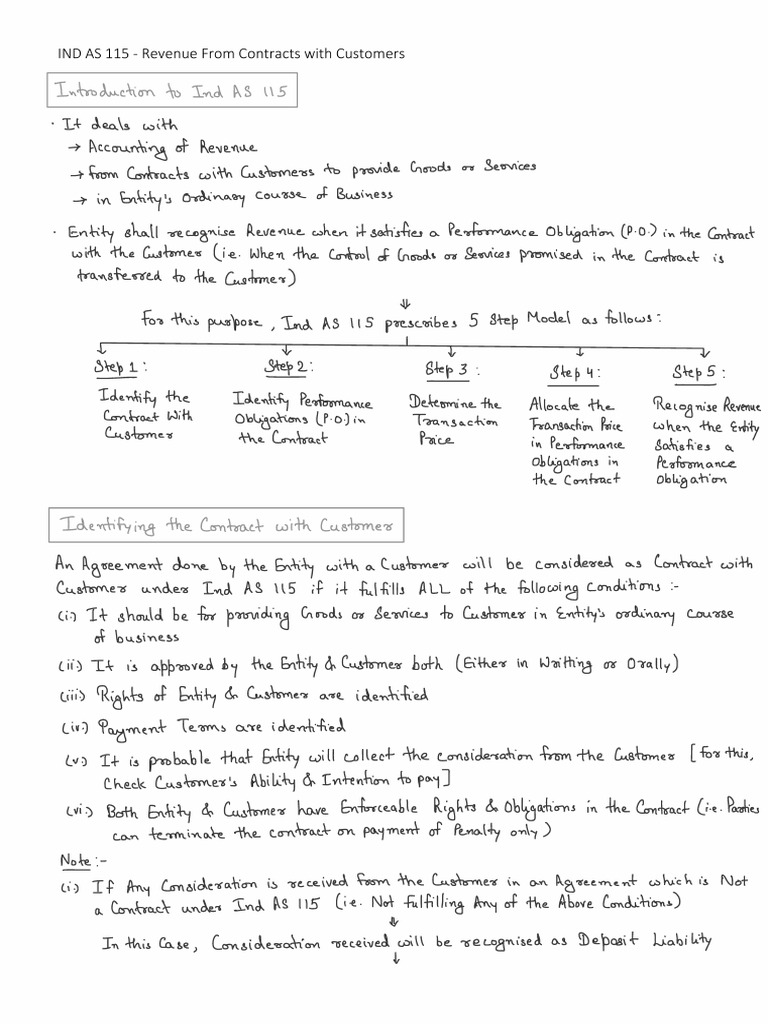 IND AS 115 - Revenue From Contracts with Customers
Introduction to Ind AS 115
· It deals with
→ Accounting of Revenue
→ from Contracts with Customers to provide Goods or Services
→ in Entity's Ordinary Course of Business
· Entity shall recognise Revenue when it satisfies a Performance Obligation (P.O.) in the Contract
with the Customer (i.e. When the Control of Goods or Services promised in the Contract is
transferred to the Customer)
↓
For this purpose, Ind AS 115 prescribes 5 Step Model as follows:
Step 1:
Identify the
Contract With
Customer
Step 2:
Identify Performance
Obligations (P.O.) in
the Contract
Step 3:
Determine the
Transaction
Price
Step 4:
Allocate the
Transaction Price
in Performance
Obligations in
the Contract
Step 5:
Recognise Revenue
when the Entity
Satisfies a
Performance
Obligation
Identifying the Contract with Customer
An Agreement done by the Entity with a Customer will be considered as Contract with
Customer under Ind AS 115 if it fulfills ALL of the following Conditions :-
(i.) It should be for providing Goods or Services to Customer in Entity's ordinary course
of business
(ii.) It is approved by the Entity & Customer both (Either in Writting or Orally)
(iii) Rights of Entity & Customer are identified
(iv.) Payment Terms are identified
(v.) It is probable that Entity will collect the consideration from the Customer [For this,
Check Customer's Ability & Intention to pay]
(vi.) Both Entity & Customer have Enforceable Rights & Obligations in the Contract (i.e. Parties
can terminate the contract on payment of Penalty only)
Note :-
(i) If Any Consideration is received from the Customer in an Agreement which is Not
a Contract under Ind AS 115 (i.e. Not fulfilling Any of the Above Conditions)
↓
In this Case, Consideration received will be recognised as Deposit Liability
↓